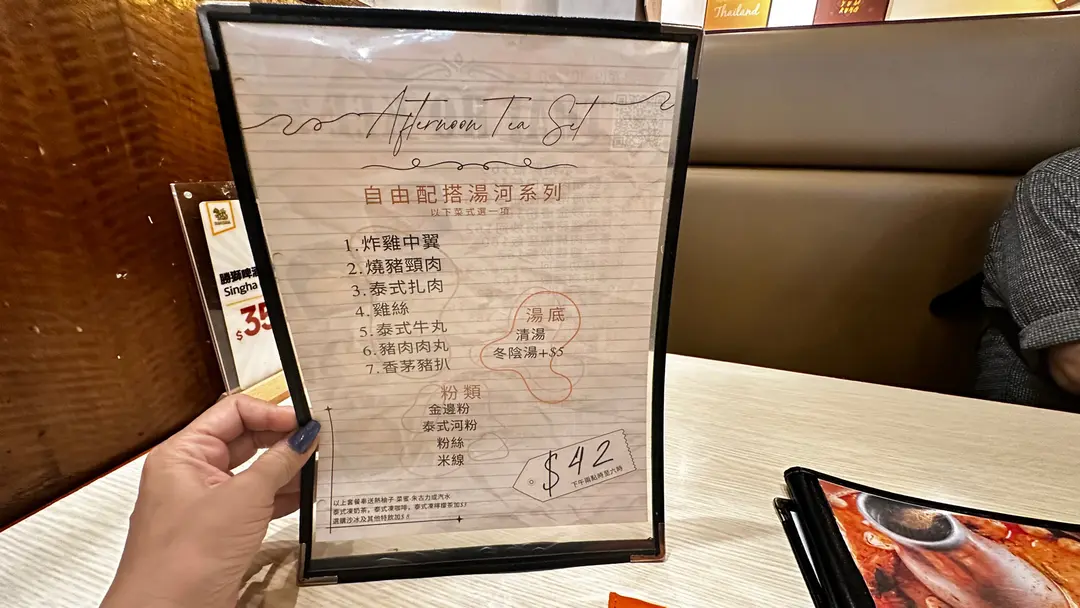 Thailand
Afternoon Tea Set
自由配搭湯河系列
以下菜式選一項
1.炸雞中翼
2.燒豬頸肉
3.泰式扎肉
4.雞絲
5.泰式牛丸
6.豬肉肉丸
7.香茅豬扒
湯底
清湯
冬陰湯+$5
粉類
金邊粉
泰式河粉
粉絲
米線
$42
下午兩點時至六時
以上套餐奉送熱柚子蜜 朱古力或汽水
泰式凍奶茶, 泰式凍咖啡, 泰式凍檸檬茶加$3
選購沙冰及其他特飲加$
勝獅啤酒
Singha
$35